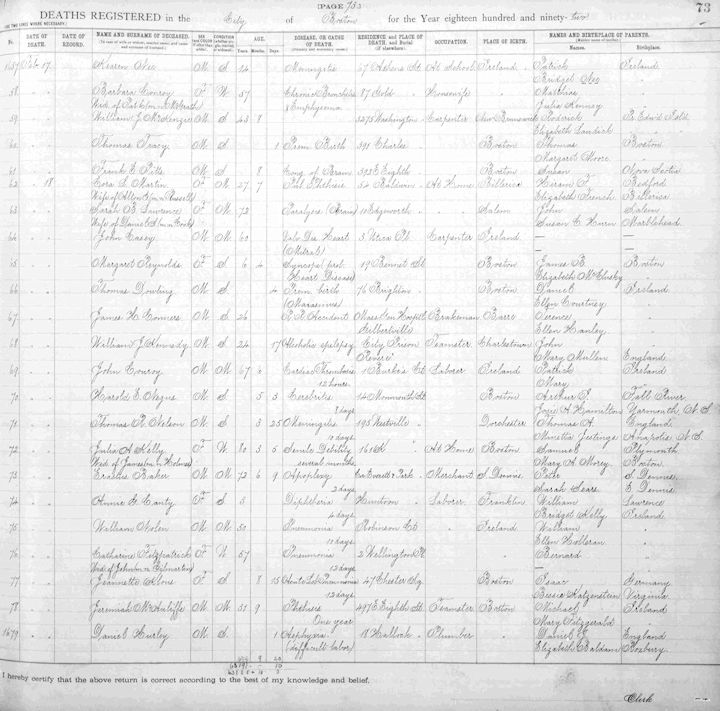 (PAGE 753)
73
DEATHS REGISTERED in the City of Boston for the Year eighteen hundred and ninety-two
(USE TWO LINES WHERE NECESSARY.)
No. DATE OF DEATH. DATE OF RECORD. NAME AND SURNAME OF DECEASED. SEX and COLOR CONDITION AGE. Years Months Days DISEASE, OR CAUSE OF DEATH. RESIDENCE and PLACE OF DEATH, and Burial (if elsewhere). OCCUPATION. PLACE OF BIRTH. NAMES AND BIRTHPLACE OF PARENTS. Names. Birthplace.
1657 Feb 17 M S 14 Meningitis 57 At School Ireland Patrick Ireland
Bridget
58 Barbara Conroy F W 57 Chronic Bronchitis 87 Gold Housewife Matthias
Emphysema Julia Kenney
59 William J. McKenzie M S 43 8 3275 Washington Carpenter New Brunswick Roderick P. Edwd Isld
Elizabeth
60 Thomas Tracy M S 1 Prem. Birth 391 Charles Boston Thomas Boston
Margaret Moore
61 Frank E Pitts M S 8 Cong. of Brain 393 E Eighth Boston Susan Nova Scotia
62 18 Cora S. Martin F M 27 7 Phthisis 54 Baldwin At Home Billerica Hiram F. Bedford
Elizabeth French Billerica
63 Sarah B Lawrence F M 72 Paralysis (Brain) 10 Edgeworth Salem John Salem
Wife of Daniel S (m.n. Cook) Susan C. Marblehead
64 John Casey M M 60 Valv Dis Heart 3 Utica Pl. Carpenter Ireland —
(Mitral) —
65 Margaret Reynolds F S 6 4 Syncope 19 Bennet St Boston James B. Boston
Heart Disease) Elizabeth McClusky
66 Thomas Dowling M S 4 Prem. birth 76 Brighton Boston Daniel Ireland
(Marasmus) Ellen Courtney
67 James H. Conners M S 26 R.R. Accident Mass Gen Hospital Brakeman Barre Terence
Gilbertville Ellen Hanley
68 William J Kennedy M S 24 17 Alcoholic epilepsy City Prison Teamster Charlestown John
Revere Mary Mullen England
69 John Conroy M M 67 6 Cardiac Thrombosis 1 Burke's Ct Laborer Ireland Patrick Ireland
12 hours. Mary
70 Harold E. M S 5 3 Cerebritis 14 Monmouth St Boston Arthur F. Fall River
8 days Josie A Hamilton Yarmouth N.S.
71 Thomas R Nelson M S 3 25 Meningitis 195 Westville Dorchester Thomas A. England
10 days Minetta Jestings Anapolis N.S.
72 Julia A Kelly F W 80 3 5 Senile Debility 161 K At Home Boston Samuel Plymouth
Wid. of James (m.n. Holmes) several months Mary A. Morey Boston
73 Erastus Baker M M 72 6 9 Apoplexy Everett's Park Merchant S. Dennis Peter S. Dennis
2 days Sarah Sears E. Dennis
74 Annie G Canty F S 3 Diphtheria Hamilton Laborer Franklin William Lawrence
4 days Bridget Kelly Ireland
75 William Nolen M M 50 Pneumonia Robinson Ct Ireland William
10 days Ellen Holleran
76 Catharine Fitzpatrick F W 57 Pneumonia 2 Wellington Pl Bernard
Wid. of John (m.n. Gilmartin) 12 days —
77 Jeannette F S 8 15 Acute Lob Pneumonia 47 Chester Sq. Boston Isaac Germany
12 days Bessie Katzenstein Virginia
78 Jeremiah McAuliffe M M 51 9 Phthisis 497 E Eighth St. Teamster Boston Michael Ireland
One year Mary Fitzgerald
1679 Daniel Hurley M S 1 Asphyxia 18 Hallock Plumber Daniel England
(difficult labor) Elizabeth Baldam Roxbury
I hereby certify that the above return is correct according to the best of my knowledge and belief.
Clerk